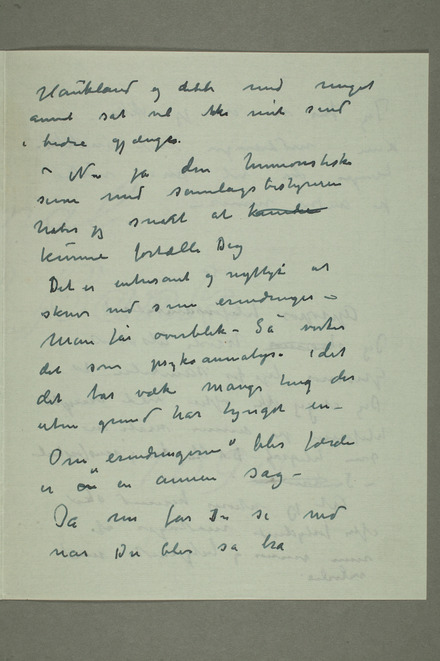 Haukland og dette med meget
annet sat vel ikke mit sind
i bedre gjænge.
– Nu ja den humoristiske
scene med samlagsbestyreren
haber jeg snart at kunde
kunne fortælle Dig
Det er interesant og nyttigt at
skrive ned sine erindringer –
Man får overblik – Så virker
det som psykoanalyse i det
det tar væk mange ting der
uten grund har tynget en –
Om "erindringerne" blir færdi
er en en annen sag –
Ja nu får Du se med
når Du blir så bra